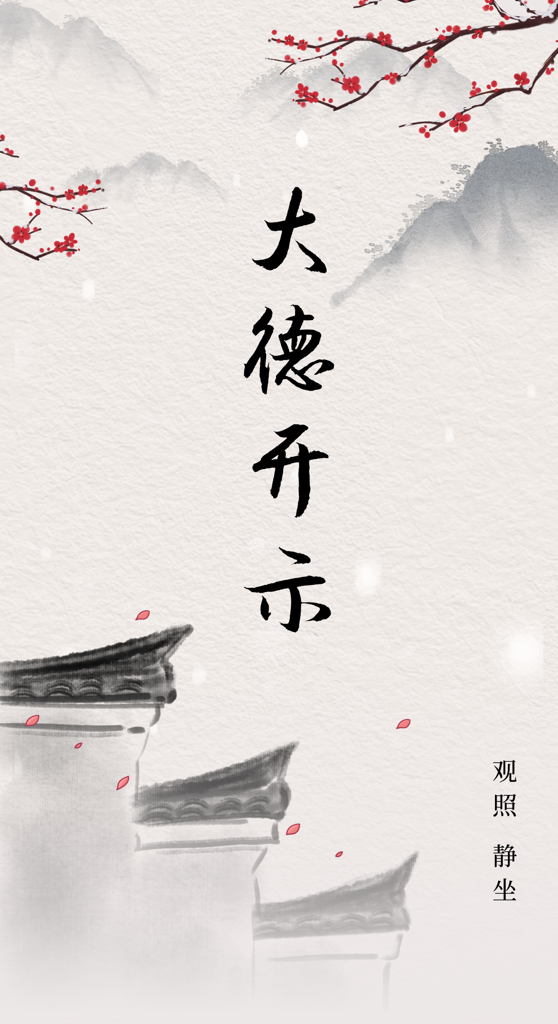 大德开示
观照 静坐